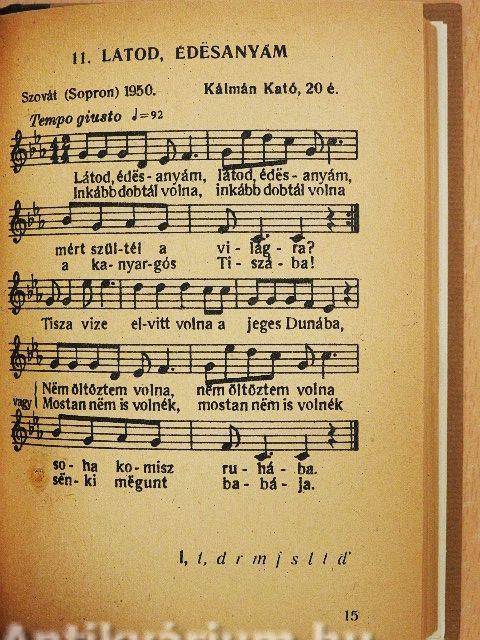 11. LÁTOD, ÉDĖSANYÁM
Szovát (Sopron) 1950. Kálmán Kató, 20 é.
Tempo giusto ♩=92
Látod, édës-anyám, látod, édës-anyám,
Inkább dobtál volna, inkább dobtál volna
mért szül-tél a vi-lág-ra?
a ka-nyar-gós Ti-szá-ba!
Tisza vize el-vitt volna a jeges Dunába,
Nëm öltöztem volna, nëm öltöztem volna
vagy Mostan nëm is volnék, mostan nëm is volnék
so-ha ko-misz ru-há-ba.
sën-ki mëgunt ba-bá-ja.
l, t, d r m f s l t d'
15
Antikvárium.hu